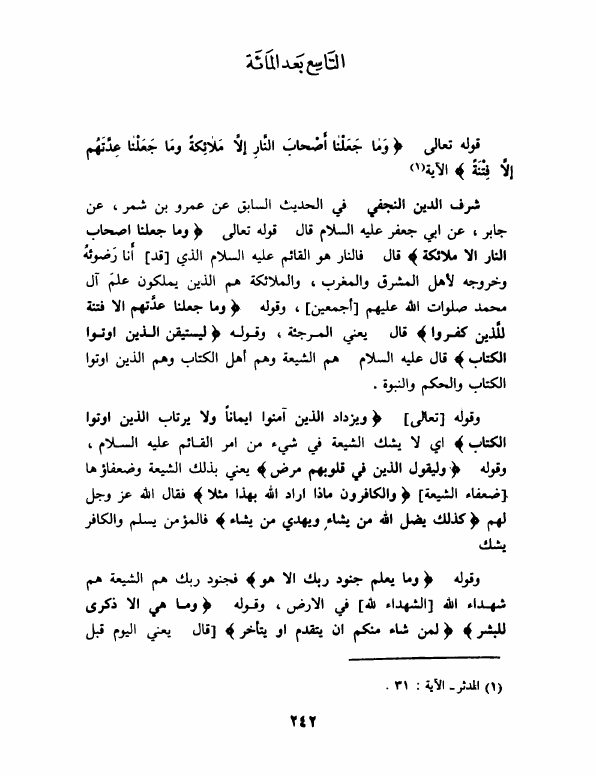 التاسع بعد المائة
قوله تعالى ﴿ وَمٰا جَعَلْنٰا أَصْحابَ النَّارِ إلاَّ مَلاٰئِكةً ومٰا جَعَلْنٰا عِدَّتَهُم
إلاَّ فِتْنَةً ﴾ الآية(١)
شرف الدين النجفي في الحديث السابق عن عمرو بن شمر ، عن
جابر ، عن ابي جعفر عليه السلام قال قوله تعالى ﴿ وما جعلنا اصحاب
النار الا ملائكة ﴾ قال فالنار هو القائم عليه السلام الذي [قد] أنا رَضوئهُ
وخروجه لأهل المشرق والمغرب ، والملائكة هم الذين يملكون علمَ آل
محمد صلوات الله عليهم [أجمعين] ، وقوله ﴿ وما جعلنا عدَّتهم الا فتنة
للَّذين كفـروا ﴾ قال يعني المـرجئة ، وقـولـه ﴿ ليستيقن الـذين اوتـوا
الكتاب ﴾ قال عليه السلام هم الشيعة وهم أهل الكتاب وهم الذين اوتوا
الكتاب والحكم والنبوة .
وقوله [تعالى] ﴿ ويزداد الذين آمنوا ايماناً ولا يرتاب الذين اوتوا
الكتاب ﴾ اي لا يشك الشيعة في شيء من امر القـائم عليه السـلام ،
وقوله ﴿ وليقول الذين في قلوبهم مرض ﴾ يعني بذلك الشيعة وضعفاؤها
[ضعفاء الشيعة] ﴿ والكافرون ماذا اراد الله بهذا مثلا ﴾ فقال الله عز وجل
لهم ﴿ كذلك يضل الله من يشاء ويهدي من يشاء ﴾ فالمؤمن يسلم والكافر
يشك
وقوله ﴿ وما يعلم جنود ربك الا هو ﴾ فجنود ربك هم الشيعة هم
شهـداء الله [الشهداء لله] في الارض ، وقـوله ﴿ ومـا هي الا ذكرى
للبشر ﴾ ﴿ لمن شاء منكم ان يتقدم او يتأخر ﴾ [قال يعني اليوم قبل
(١) المدثر ـ الآية : ٣١ .
٢٤٢